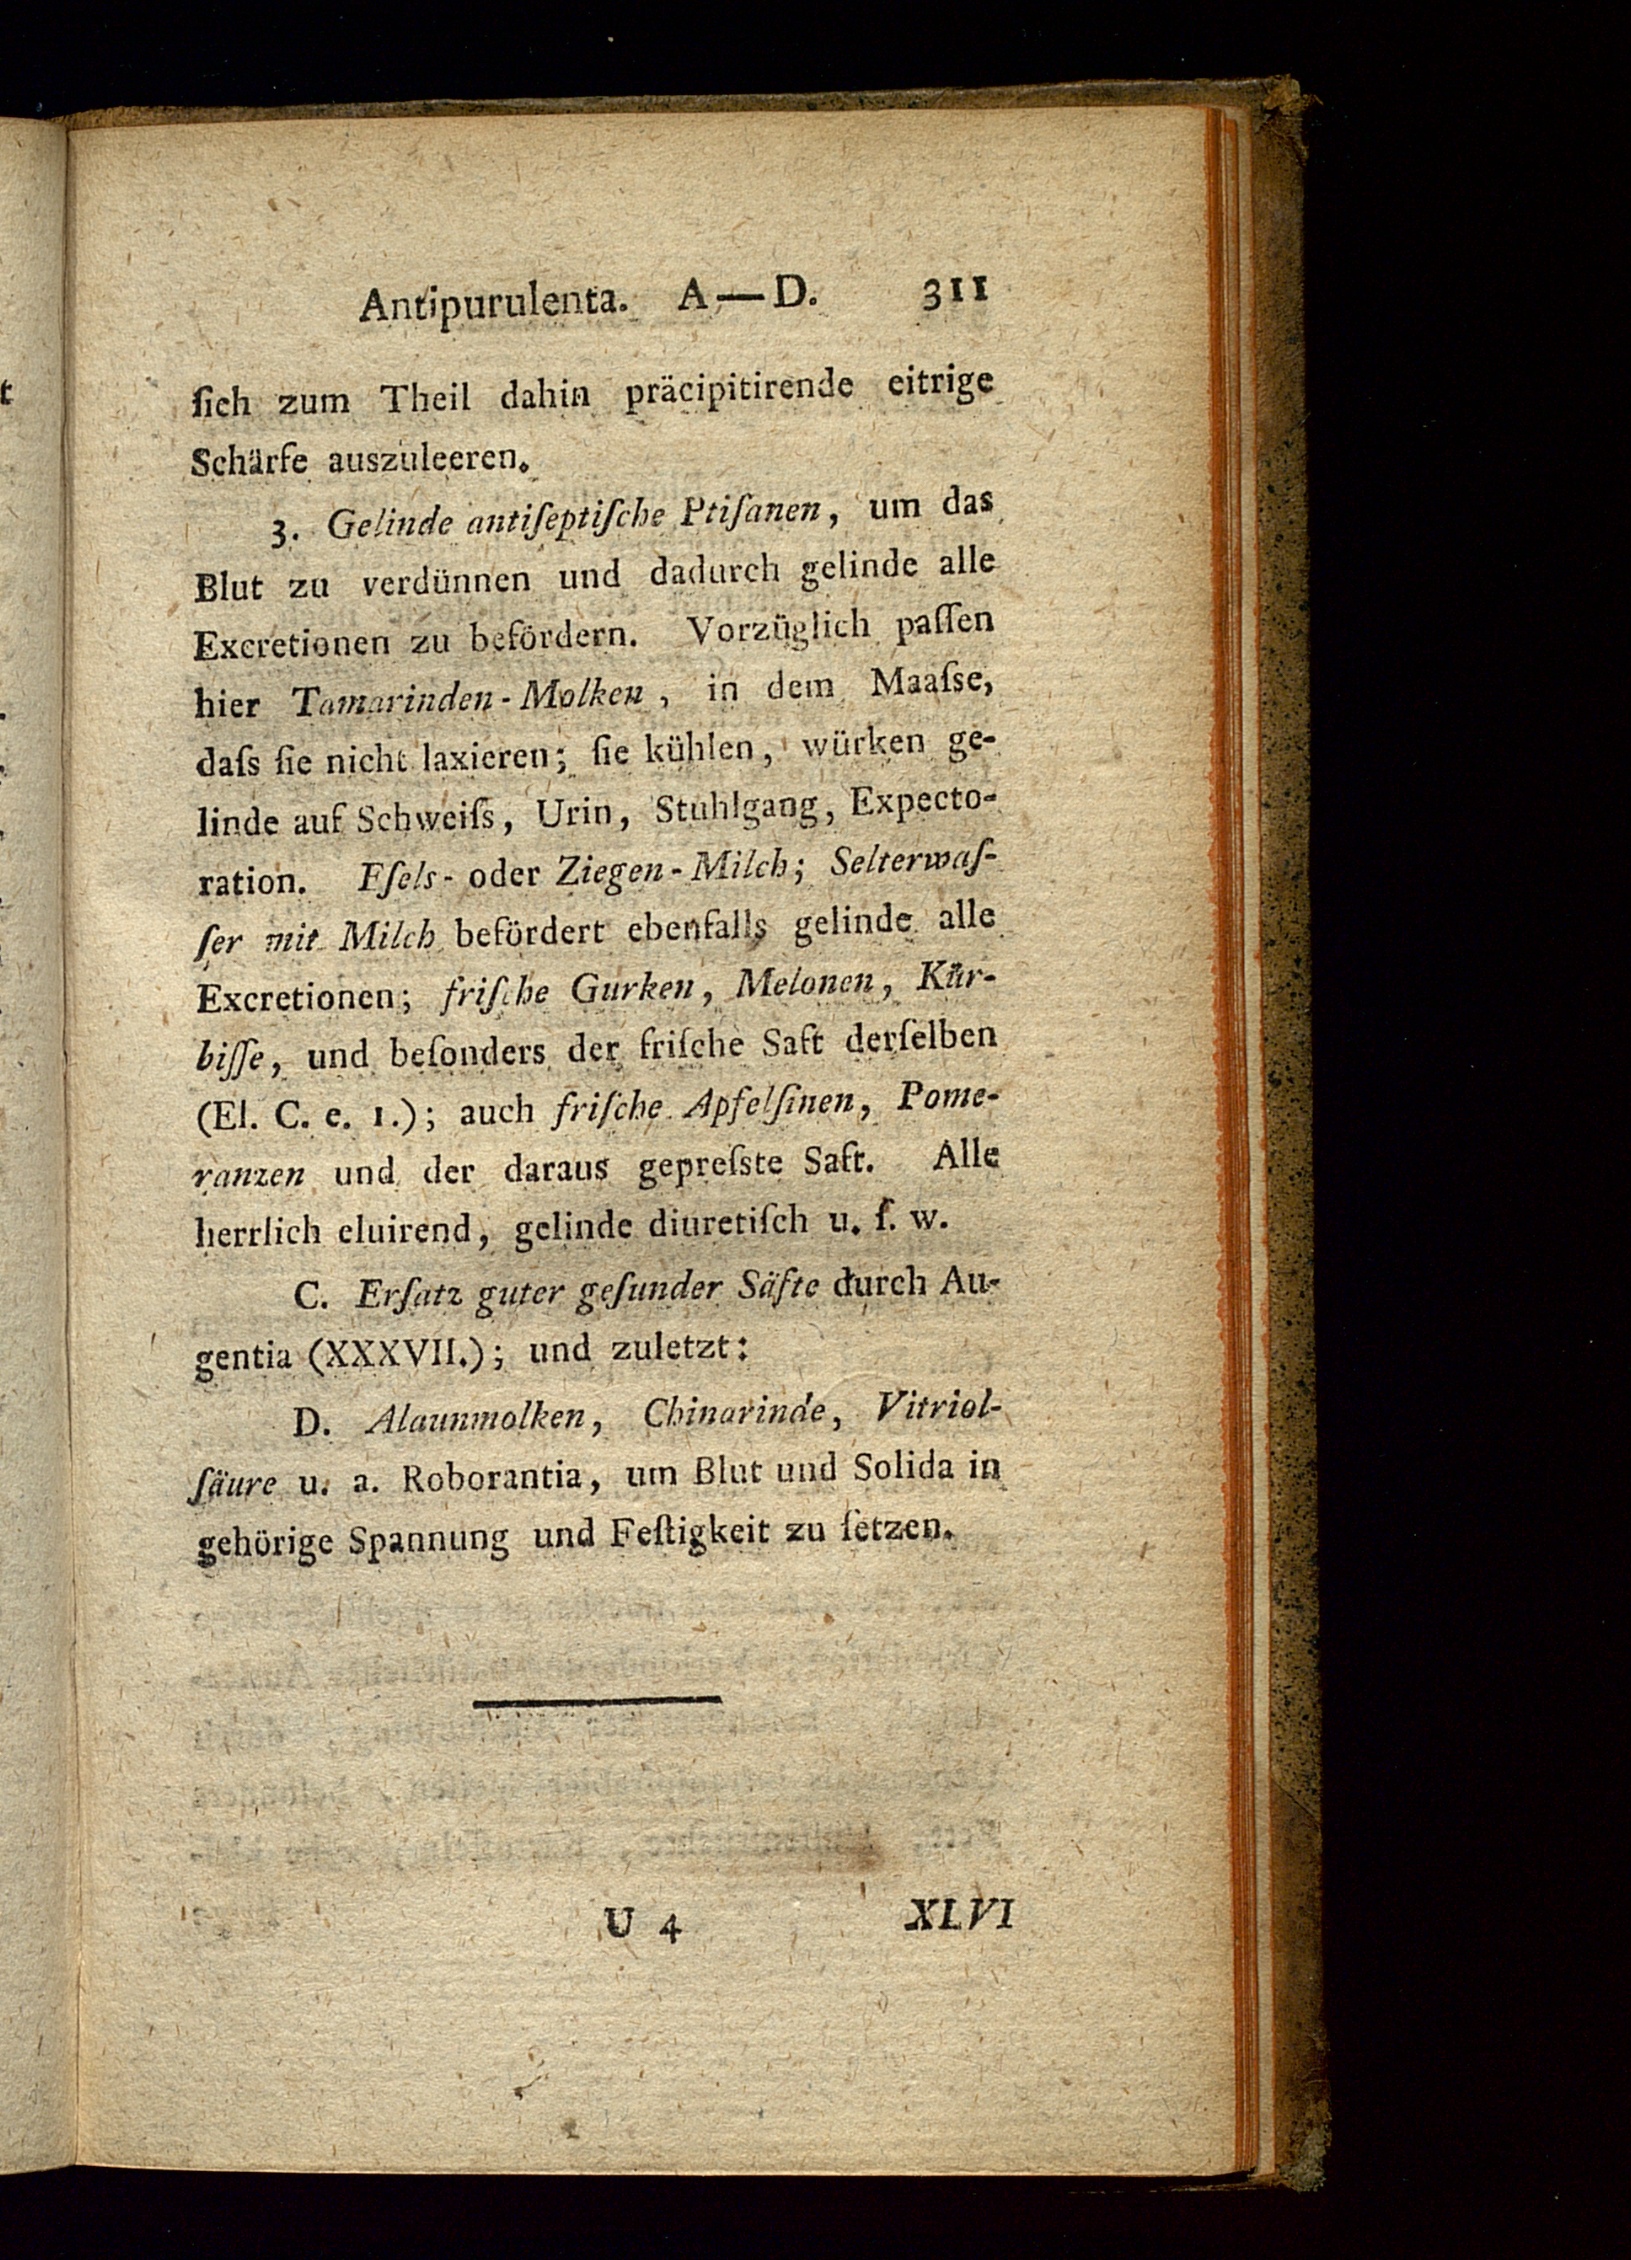 Antipurulenta. A—D. 311
ſich zum Theil dahin präcipitirende eitrige
Schärfe auszuleeren.
3. Gelinde antiſeptiſche Ptiſanen, um das
Blut zu verdünnen und dadurch gelinde alle
Excretionen zu befördern. Vorzüglich paſſen
hier Tamarinden-Molken, in dem Maaſse,
daſs ſie nicht laxieren; ſie kühlen, würken ge-
linde auf Schweiſs, Urin, Stuhlgang, Expecto-
ration. Eſels- oder Ziegen-Milch; Selterwaſ-
ſer mit Milch befördert ebenfalls gelinde alle
Excretionen; friſche Gurken, Melonen, Kür-
biſſe, und beſonders der friſche Saft derſelben
(El. C. e. 1.); auch friſche Apfelſinen, Pome-
ranzen und der daraus gepreſste Saft. Alle
herrlich eluirend, gelinde diuretiſch u. ſ. w.
C. Erſatz guter geſunder Säfte durch Au-
gentia (XXXVII.); und zuletzt:
D. Alaunmolken, Chinarinde, Vitriol-
ſäure u. a. Roborantia, um Blut und Solida in
gehörige Spannung und Feſtigkeit zu ſetzen.
U 4 XLVI